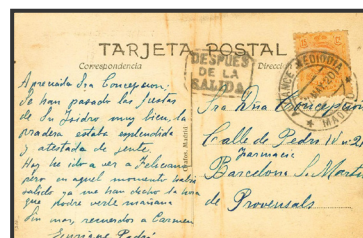 TARJETA POSTAL
Correspondencia
DESPUÉS
DE LA
SALIDA
ALCANCE MEDIODIA
MADRID
Apreciada Sra Concepcion:
Ya han pasado las fiestas
de Sn Isidro muy bien, la
pradera estaba esplendida
y atestada de gente.
Hoy he ido a ver a
pero en aquel momento habia
salido ya me han dicho la hora
que podre verle mañana
Sin mas, recuerdos a Carmen
Enrique
Madrid
Sra Dña Concepción
Calle de Pedro IV nº
Farmacia
Barcelona S. Martin
de Provensals